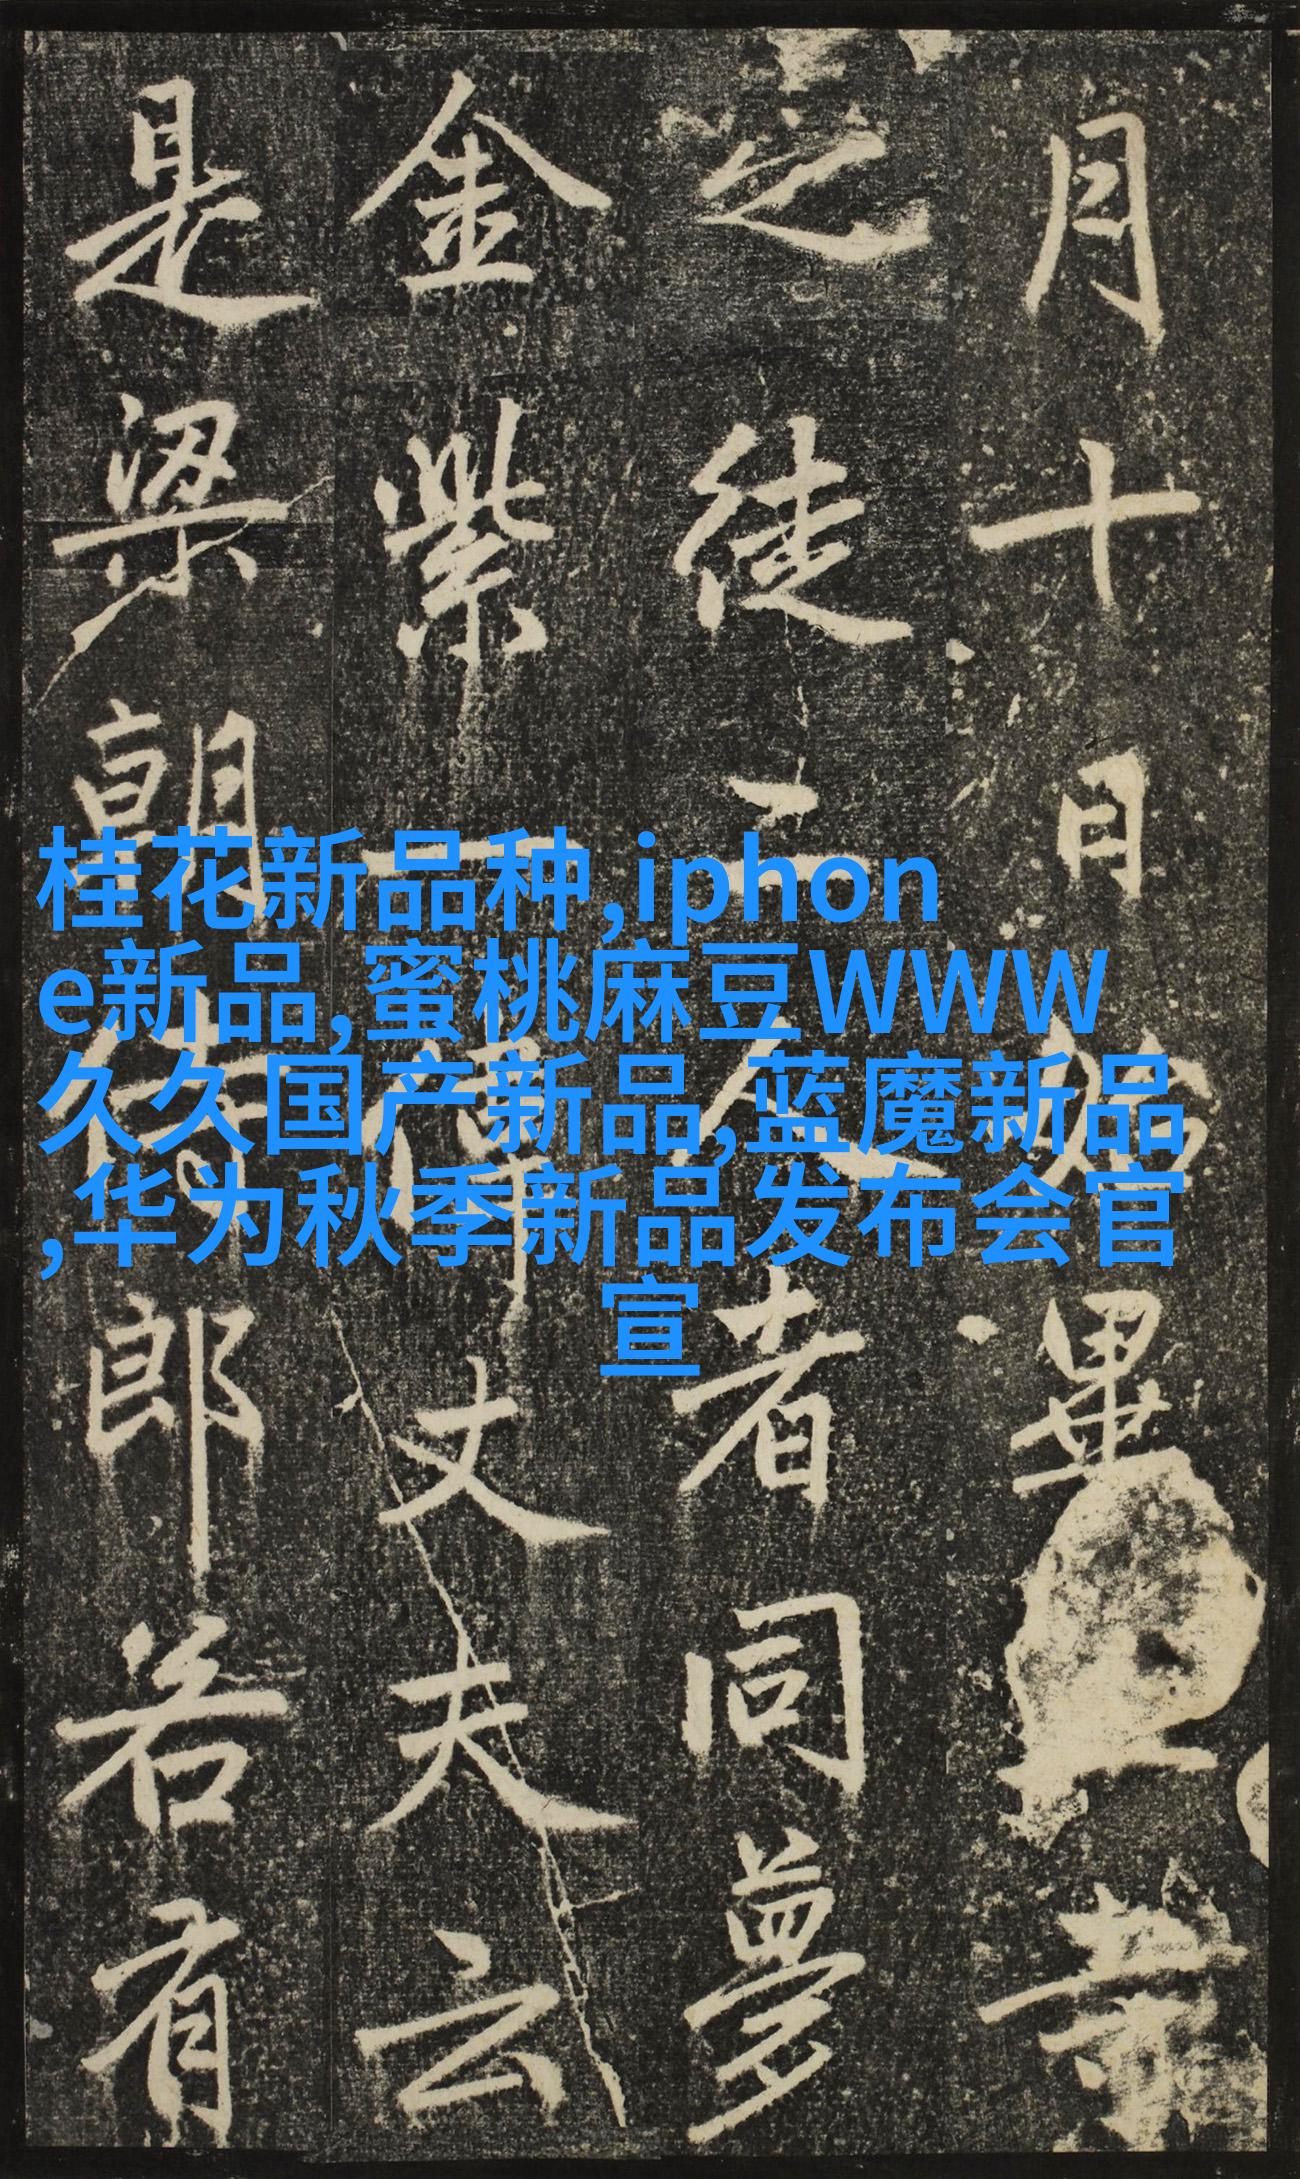 月十日 畢 業
之徒三人者同夢
金紫一丈夫云
是梁朝侍郎若有
桂花新品种,iphon
e新品,蜜桃麻豆WWW
久久国产新品,蓝魔新品
,华为秋季新品发布会官
宣